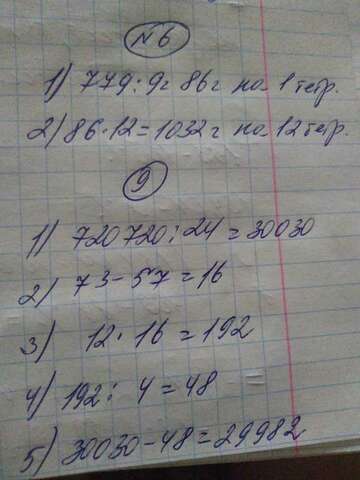 №6
1) 779:9г 86г на 1 тетр.
2) 86·12=1032г на 12 тетр.
9
1) 720720:24=30030
2) 73-57=16
3) 12·16=192
4) 192:4=48
5) 30030-48=29982